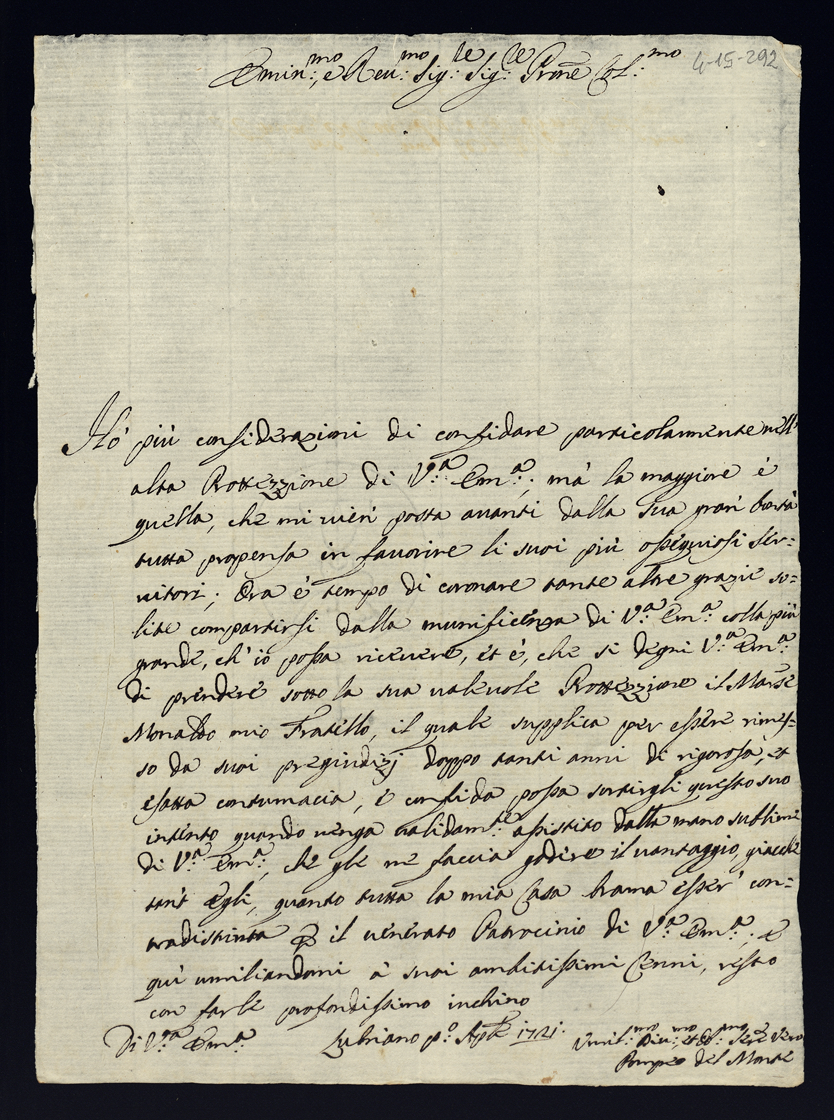 Emin:mo, e Reu:mo Sig:re Sig:re Prone Col:mo
4-15-292
Hò più considerazioni di confidare particolarmente nell'
alta Protezzione di V:a Em:a, mà la maggiore è
quella, che mi vien' posta avanti dalla sua gran' bontà
tutta propensa in favorire li suoi più ossequiosi ser=
vitori; Ora è tempo di coronare tante altre grazie so=
lite compartirsi dalla munificenza di V:a Em:a colla più
grande, ch'io possa ricevere, et è, che si degni V:a Em:a
di prendere sotto la sua valevole Protezzione il Marse
Monaldo mio Fratello, il quale supplica per essere rimes=
so da suoi pregiudizj doppo tanti anni di rigorosa, et
esatta contumacia, e confida possa sortirgli questo suo
intento quando venga validam:te assistito dalla mano sublime
di V:a Em:a, che gle ne faccia godere il vantaggio, giache
tant' Egli, quanto tutta la mia Casa brama esser' con=
tradistinta p il venerato Patrocinio di V:a Em:a; e
quì umiliandomi à suoi ambitissimi Cenni, resto
con farle profondissimo inchino
Di V:a Em:a
Lubriano p:o Aple 1721:
Umil:mo Diu:mo, et Ob:mo Sere Vero
Pompeo del Monte